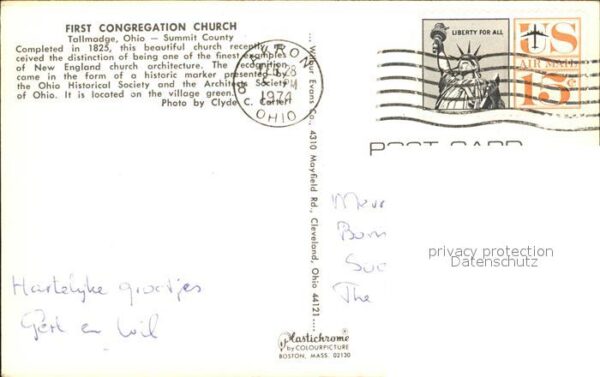 FIRST CONGREGATION CHURCH
Tallmadge, Ohio — Summit County
Completed in 1825, this beautiful church recently re-
ceived the distinction of being one of the finest examples
of New England church architecture. The recognition
came in the form of a historic marker presented by
the Ohio Historical Society and the Architects Society
of Ohio. It is located on the village green.
Photo by Clyde C.
AKRON
PM
1974
OHIO
LIBERTY FOR ALL
US
AIR MAIL
15c
POST CARD
Wilbur Evans Co., 4310 Mayfield Rd., Cleveland, Ohio 44121....
privacy protection
Datenschutz
The
Hartelyke groetjes
en Wil
Plastichrome
by COLOURPICTURE
BOSTON, MASS. 02130